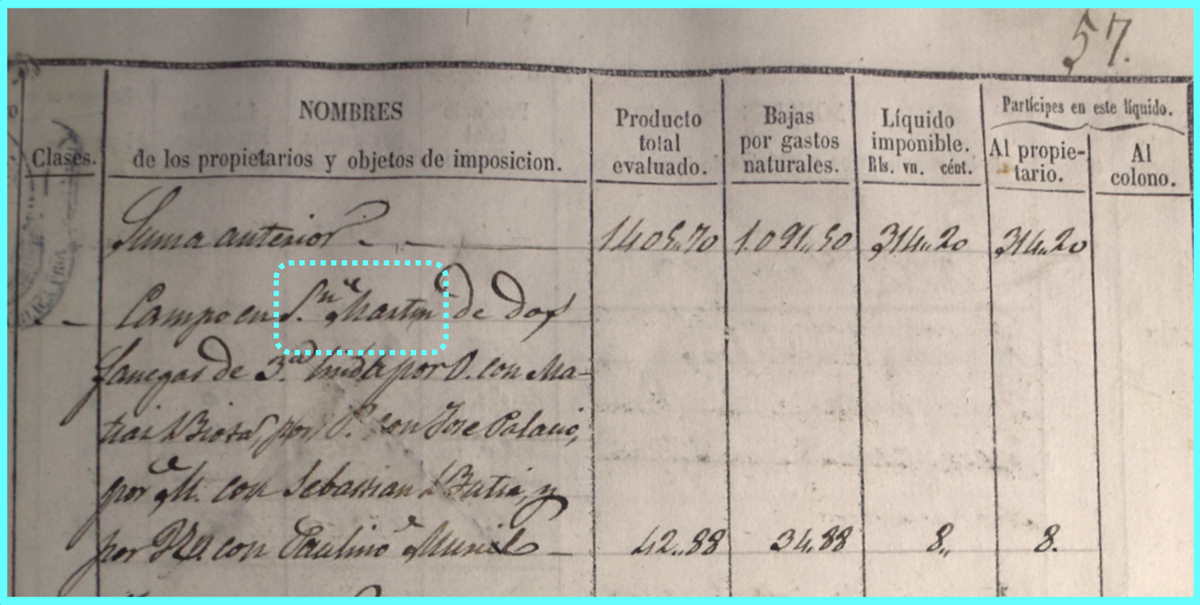 57.
Clases.
NOMBRES
de los propietarios y objetos de imposicion.
Producto total evaluado.
Bajas por gastos naturales.
Líquido imponible.
Rls. vn. cént.
Partícipes en este líquido.
Al propie-
tario.
Al colono.
Suma anterior 1405,,70 1.091,,50 314,,20 314,,20
Campo en S.n Martin de dos
fanegas de 3.a linda por O. con Ma-
tias por P. con Jose Palacio,
por M. con Sebastian y
por N. con Paulino 42,,88 34,,88 8,, 8.